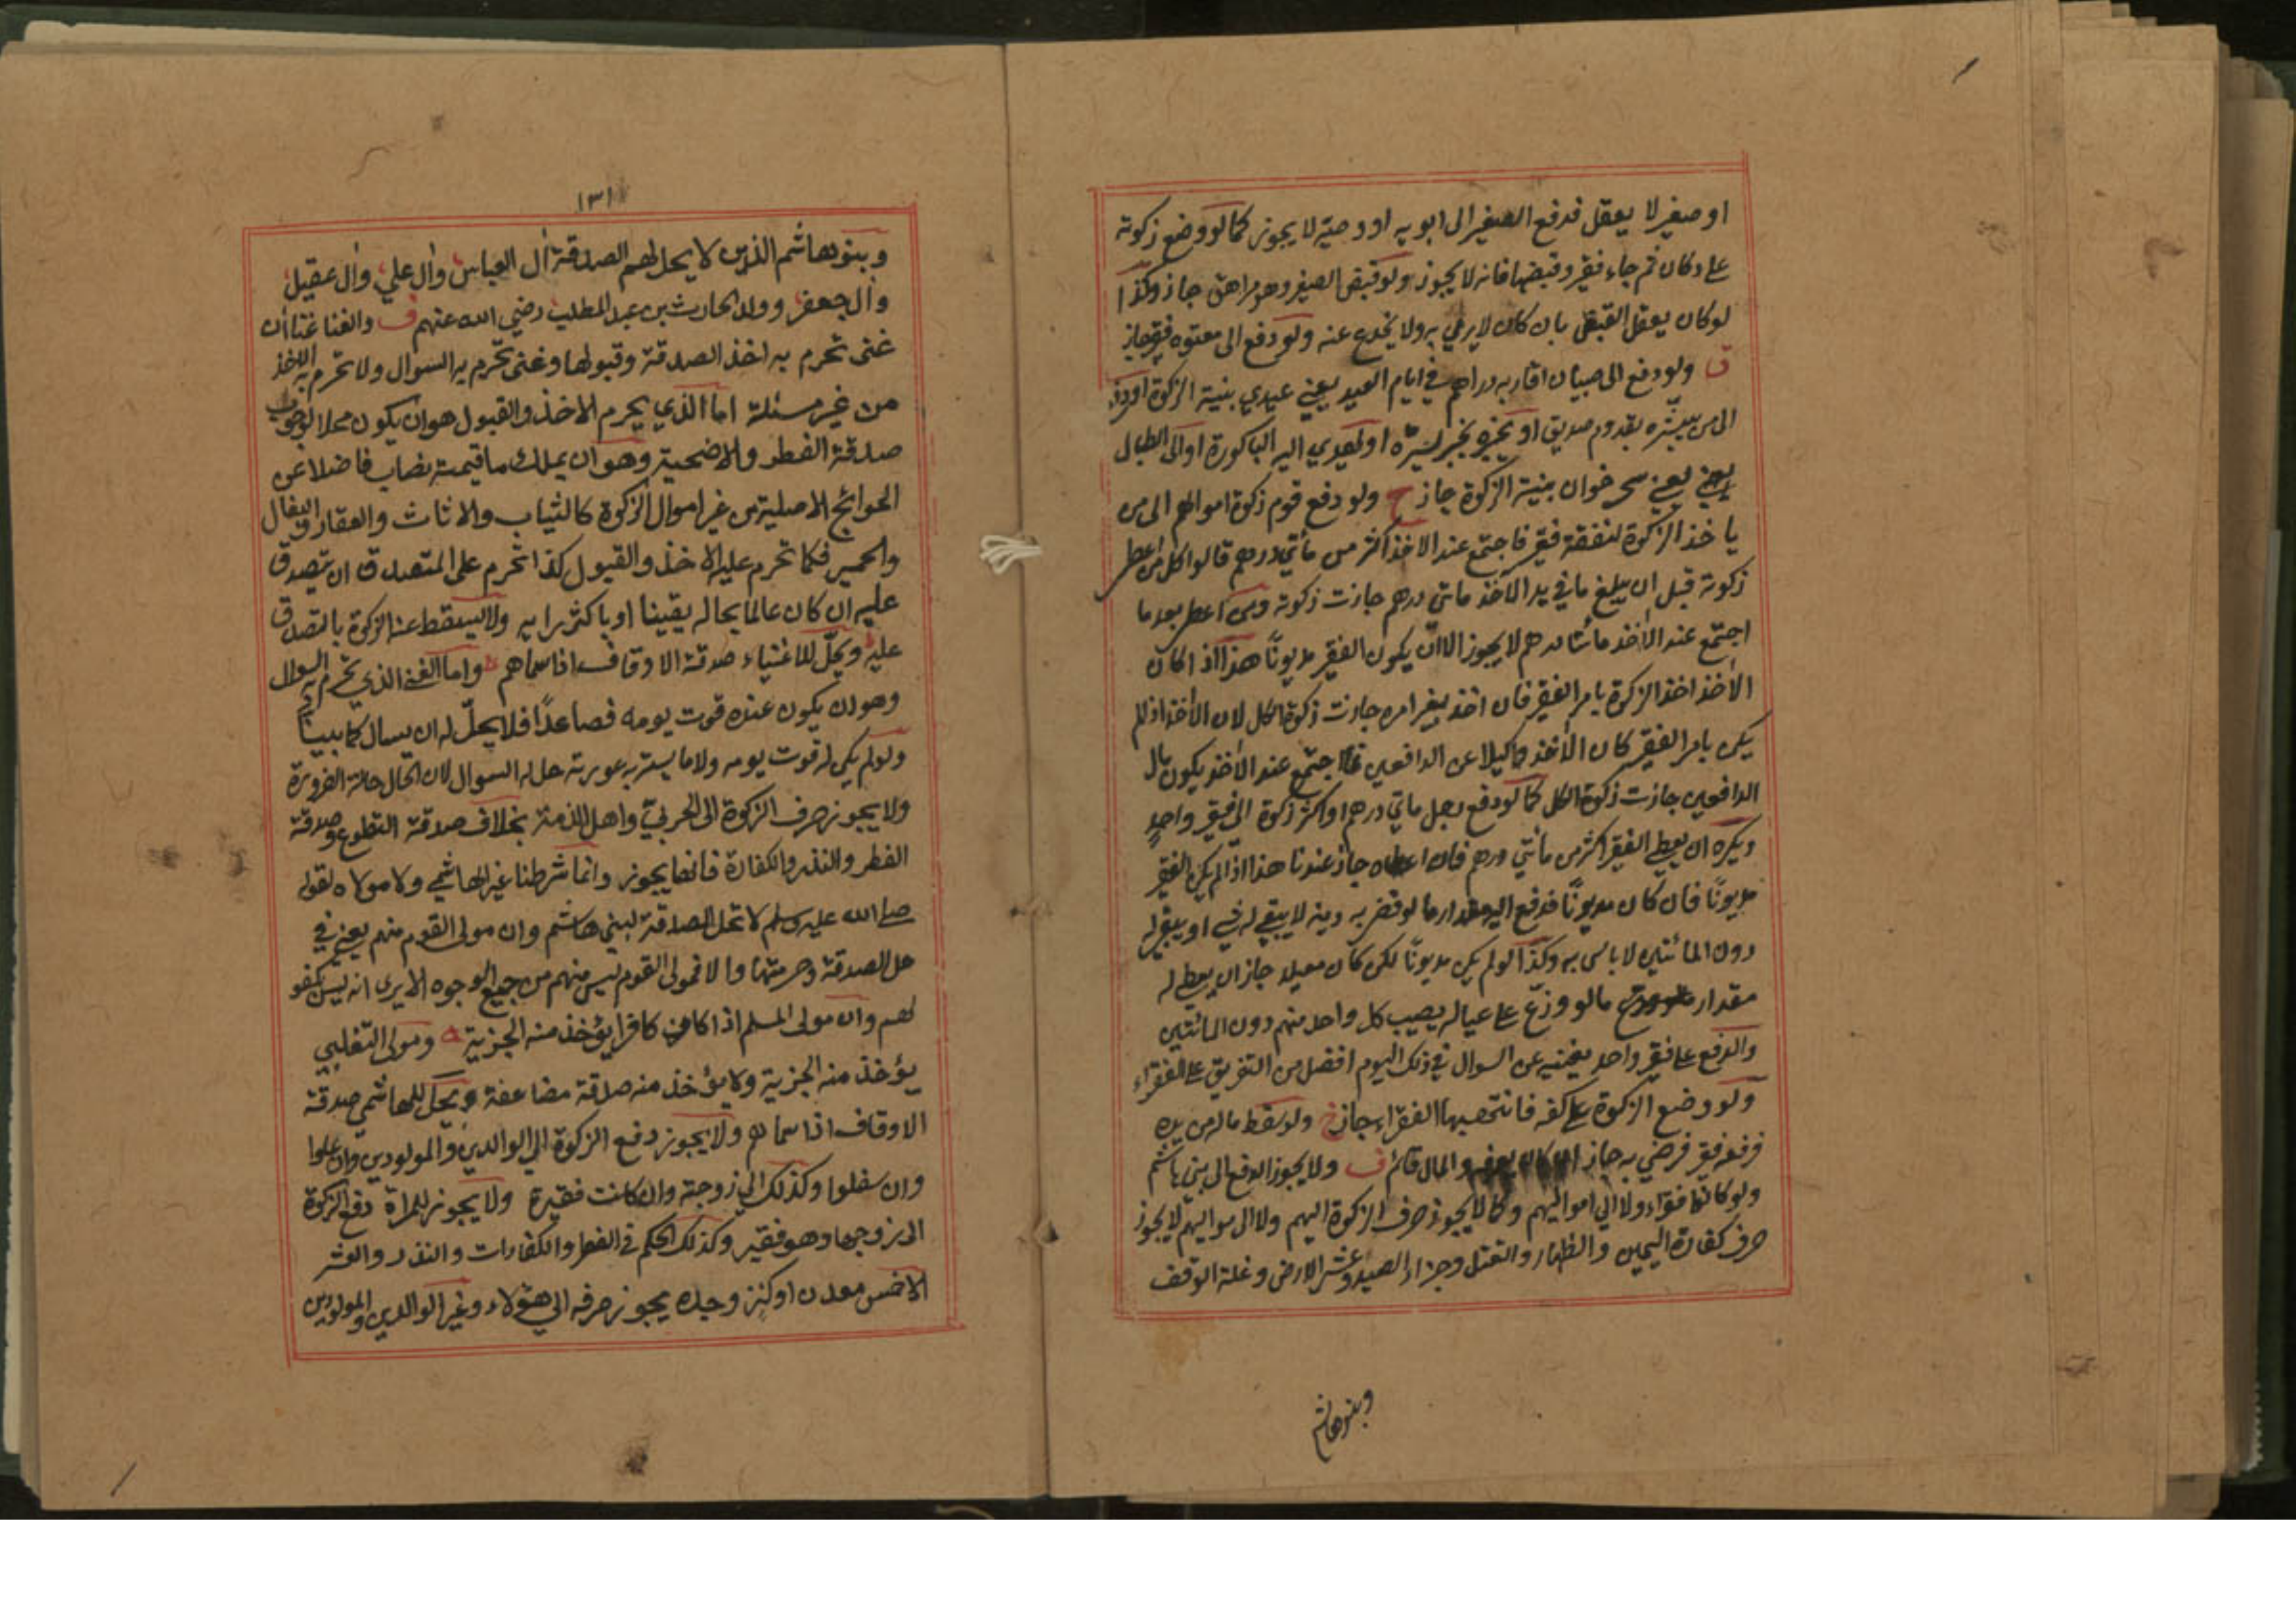 او صغير لا يعقل فدفع الصغير الى ابويه او وصيّه لا يجوز كما لو وضع زكوته
على دكان ثم جاء فقير وقبضها فانه لا يجوز ولو قبض الصغير وهو مراهق جاز وكذا
لو كان يعقل القبض بان كان لا يرمي به ولا يخدع عنه ولو دفع الى معتوه فقير جاز
ق ولو دفع الى صبيان اقاربه دراهم في ايام العيد يعني عيدي بنية الزكوة او دفع
الى من يبشّره بقدوم صديق او يخبره بخبر يسرّه او يهدي اليه الباكورة او الى الطبال
يعني سحر خوان بنية الزكوة جاز ح ولو دفع قوم زكوة اموالهم الى من
ياخذ الزكوة لنفقة فقير فاجتمع عند الاخذ اكثر من مأتي درهم قالوا كل من اعطى
زكوته قبل ان يبلغ ما في يد الآخذ ماتي درهم جازت زكوته ومن اعطى بعد ما
اجتمع عند الآخذ مأتا درهم لا يجوز الا ان يكون الفقير مديونًا هذا اذا كان
الآخذ اخذ الزكوة بامر الفقير فان اخذ بغير امره جازت زكوة الكل لان الآخذ اذا لم
يكن بامر الفقير كان الآخذ وكيلا عن الدافعين فما اجتمع عند الآخذ يكون مال
الدافعين جازت زكوة الكل كما لو دفع رجل ماتي درهم او اكثر زكوة الى فقير واحدٍ
ويكره ان يعطي الفقير اكثر من مأتي درهم فان اعطاه جاز عندنا هذا اذا لم يكن الفقير
مديونًا فان كان مديونًا فدفع اليه مقدار ما لو قضى به دينه لا يبقى له شيء او يبقى له
دون المائتين لا باس به وكذا لو لم يكن مديونًا لكن كان معيلا جاز ان يعطى له
مقدار ما لو وزّع على عياله يصيب كل واحد منهم دون المائتين
والدفع على فقير واحد يغنيه عن السوال في ذلك اليوم افضل من التفريق على الفقراء
ولو وضع الزكوة على كفه فانتهبها الفقراء جاز خ ولو سقط ماله من يده
فرفعه فقير فرضي به جاز ان كان يعرفه والمال قائم ف ولا يجوز الدفع الى بني هاشم
ولو كانوا فقراء ولا الى مواليهم وكما لا يجوز صرف الزكوة اليهم ولا الى مواليهم لا يجوز
صرف كفارة اليمين والظهار والقتل وجزاء الصيد وعشر الارض وغلة الوقف
وبنو هاشم
١٣١
وبنو هاشم الذين لا يحل لهم الصدقة آل العباس وآل علي وآل عقيل
وآل جعفر وولد الحارث بن عبد المطلب رضي الله عنهم ف والغنا غنا ان
غنى تحرم به اخذ الصدقة وقبولها وغنى تحرم به السوال ولا تحرم به الاخذ
من غير مسئلة اما الذي يحرم الاخذ والقبول هو ان يكون محلا لوجوب
صدقة الفطر والاضحية وهو ان يملك ما قيمته نصاب فاضلا عن
الحوائج الاصلية من غير اموال الزكوة كالثياب والاثاث والعقار والبغال
والحمير فكما تحرم عليه الاخذ والقبول كذا تحرم على المتصدق ان يتصدق
عليه ان كان عالما بحاله يقينا او باكثر رايه ولا يسقط عنه الزكوة بالتصدق
عليه ويحلّ للاغنياء صدقة الاوقاف اذا سماهم واما الغنى الذي تحرم به السوال
وهو ان يكون عنده قوت يومه فصاعدًا فلا يحلّ له ان يسال كما بيناّ
ولو لم يكن له قوت يومه ولا ما يستر به عورته حل له السوال لان الحال حالة الضرورة
ولا يجوز صرف الزكوة الى الحربيّ واهل الذمة بخلاف صدقة التطوع وصدقة
الفطر والنذر والكفارة فانها يجوز وانما شرطنا غير الهاشمي ولا مولاه لقوله
صلى الله عليه وسلم لا تحل الصدقة لبني هاشم وان مولى القوم منهم يعني في
حل الصدقة وحرمتها والا فمولى القوم ليس منهم من جميع الوجوه الا يرى انه ليس بكفو
لهم وان مولى المسلم اذا كان كافرا يؤخذ منه الجزية ه ومولى التغلبي
يؤخذ منه الجزية ولا يؤخذ منه صدقة مضاعفة ويحلّ للهاشمي صدقة
الاوقاف اذا سما لهم ولا يجوز دفع الزكوة الى الوالدين والمولودين وان علوا
وان سفلوا وكذلك الى زوجته وان كانت فقيرة ولا يجوز للمراة دفع الزكوة
الى زوجها وهو فقير وكذلك الحكم في الفطر والكفارات والنذر والعشر
الا خمس معدن او كنز وجده يجوز صرفه الى هؤلاء وغير الوالدين والمولودين